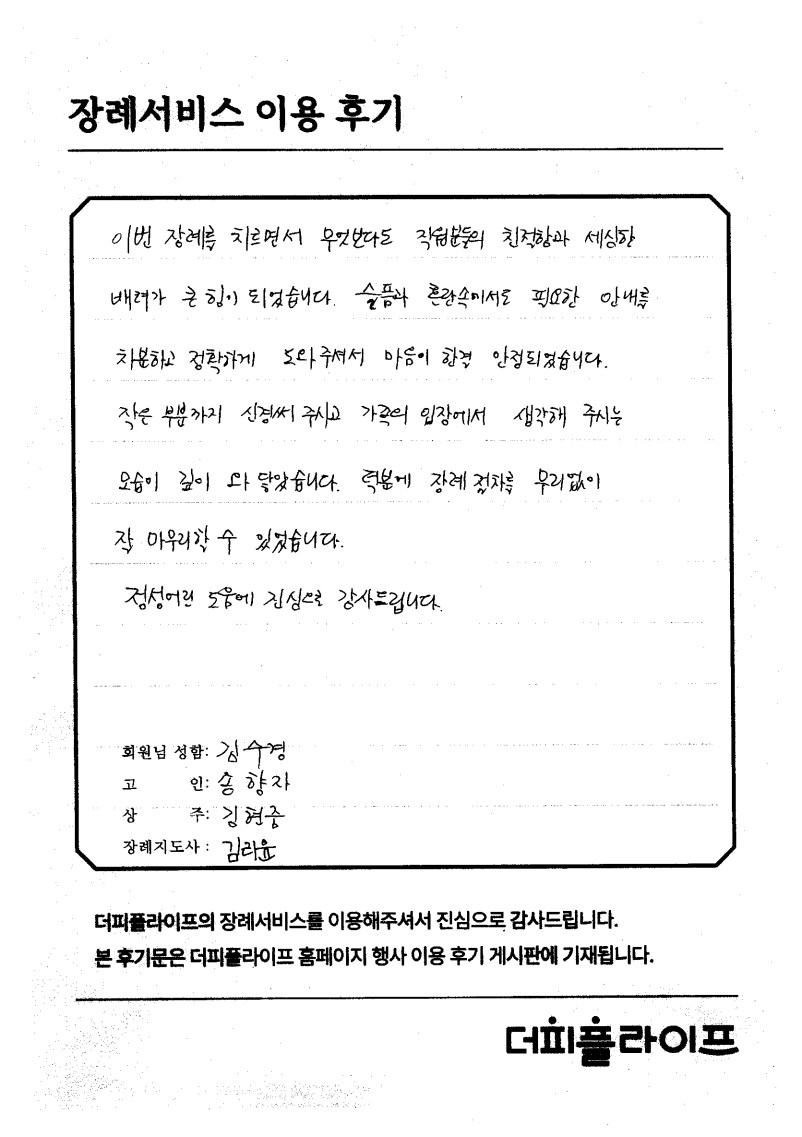 장례서비스 이용 후기
이번 장례를 치르면서 무엇보다도 직원분들의 친절함과 세심한
배려가 큰 힘이 되었습니다. 슬픔과 혼란속에서도 필요한 안내를
차분하고 정확하게 도와주셔서 마음이 한결 안정되었습니다.
작은 부분까지 신경써 주시고 가족의 입장에서 생각해 주시는
모습이 깊이 와 닿았습니다. 덕분에 장례 절차를 무리없이
잘 마무리할 수 있었습니다.
정성어린 도움에 진심으로 감사드립니다.
회원님 성함: 김수경
고 인: 송향자
상 주: 김현중
장례지도사 : 김라윤
더피플라이프의 장례서비스를 이용해주셔서 진심으로 감사드립니다.
본 후기문은 더피플라이프 홈페이지 행사 이용 후기 게시판에 기재됩니다.
더피플라이프